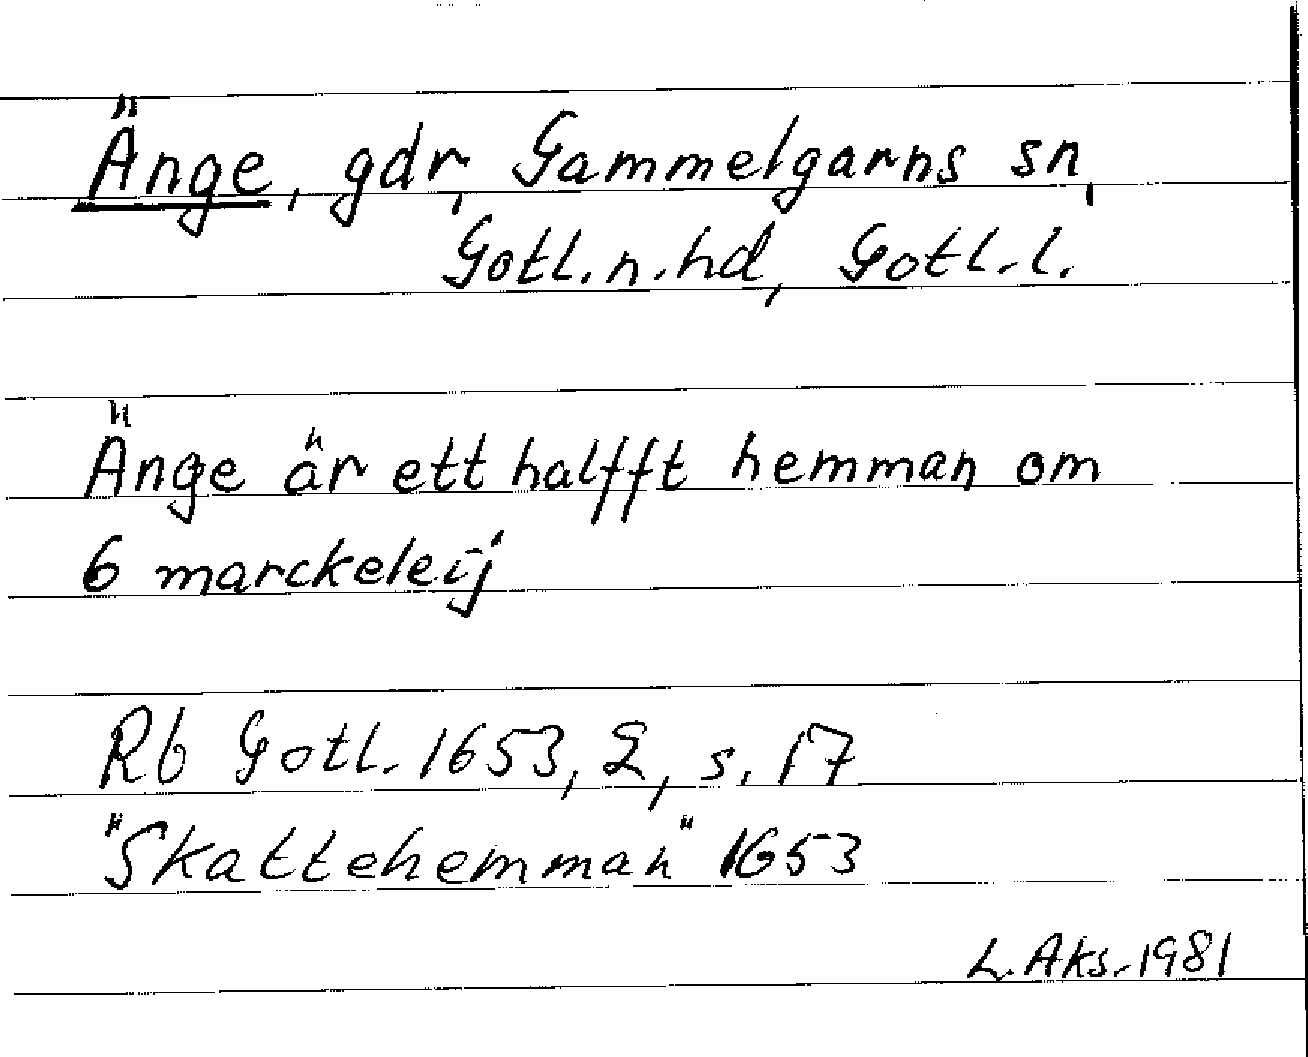 Änge, gdr, Gammelgarns sn,
Gotl. n. hd, Gotl. l.
Änge är ett halfft hemman om
6 marckeleij
Rb Gotl. 1653, 2, s. 17
"Skattehemman" 1653
L. Aks. 1981